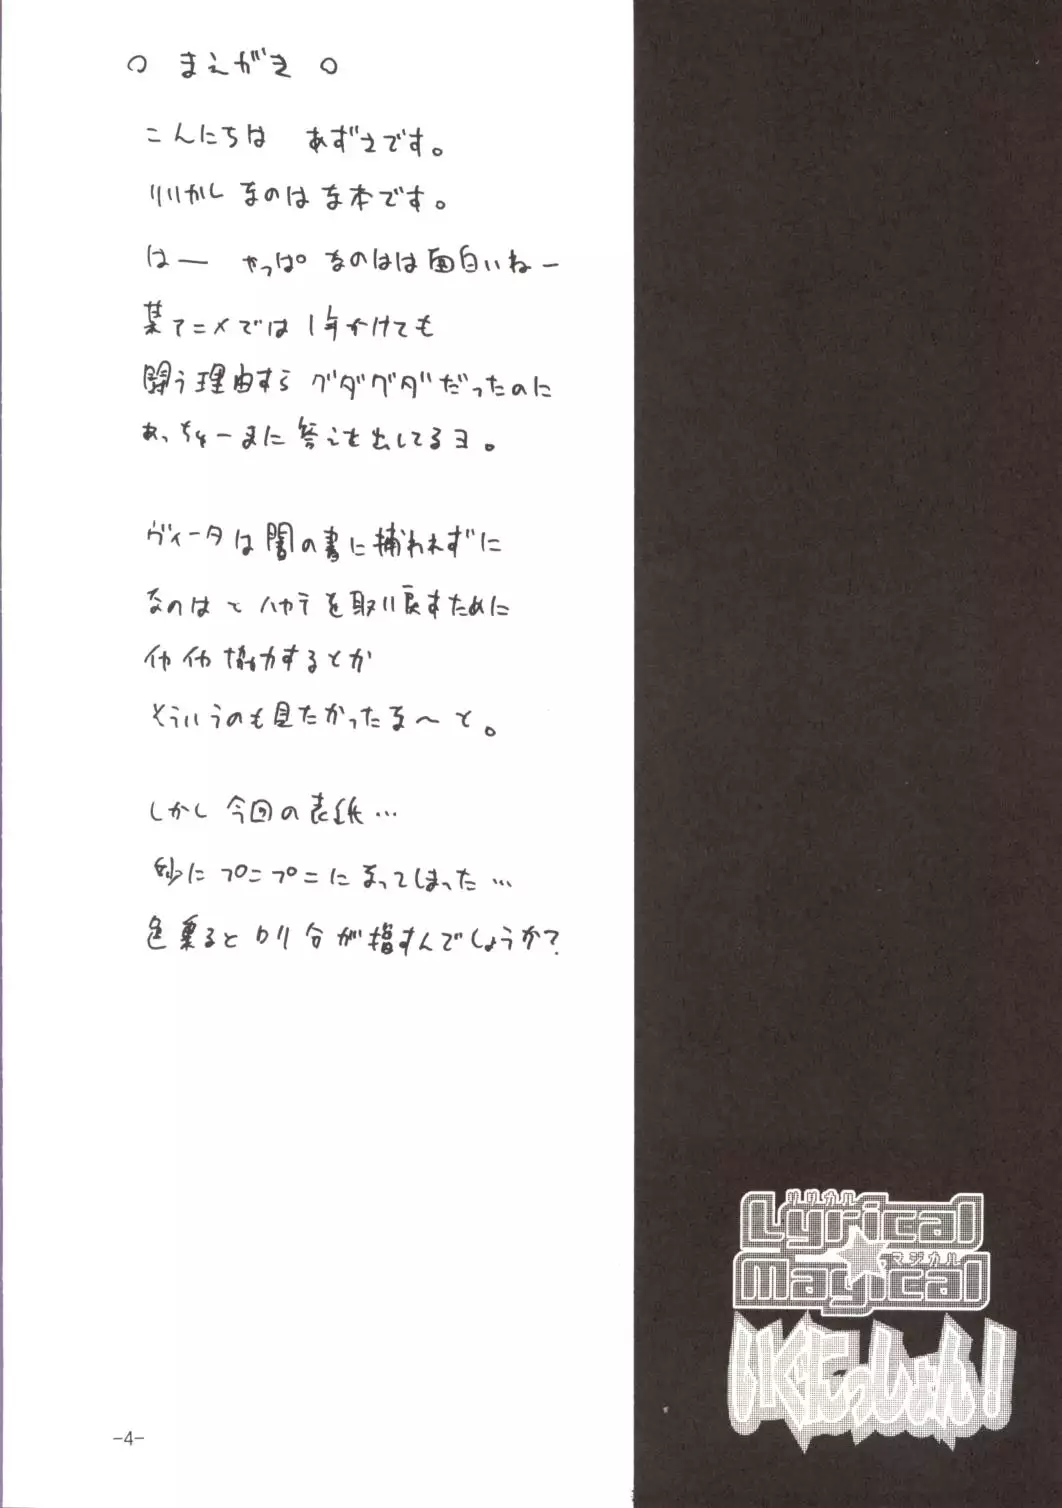 ○ まえがき ○
こんにちは あずさです。
リリかし なのはな本です。
はー やっぱ なのはは面白いねー
某アニメでは 1年かけても
闘う理由すら グダグダだったのに
あっちゅーまに 答えを出してるヨ。
ヴィータは闇の書に捕われずに
なのはと ハヤテを取り戻すために
イヤイヤ 協力するとか
そういうのも見たかったな〜と。
しかし 今回の表紙…
妙に プニプニに なってしまった…
色塗ると ロリ分が指すんでしょうか?
リリカル
Lyrical
マジカル
Magical
-4-